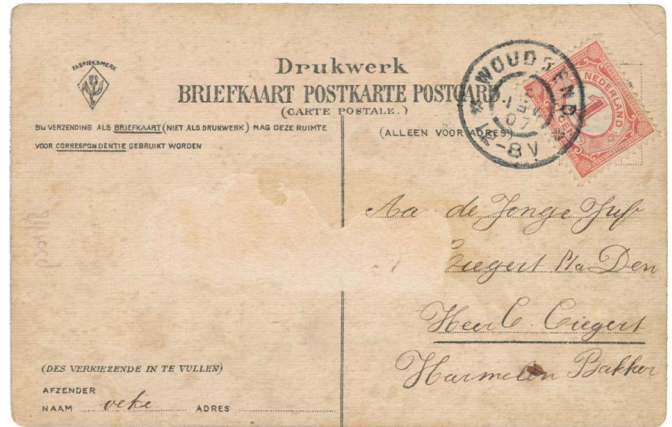 FABRIEKSMERK
Drukwerk
BRIEFKAART POSTKARTE POSTCARD
(CARTE POSTALE.)
BIJ VERZENDING ALS BRIEFKAART (NIET ALS DRUKWERK) MAG DEZE RUIMTE
VOOR CORRESPONDENTIE GEBRUIKT WORDEN
(ALLEEN VOOR ADRES)
WOUDSEND
07
4-8V
NEDERLAND
1
CENT
Aa de Jonge Juf
Ciegert P/a Den
Heer C. Ciegert
Harmelen Bakker
(DES VERKIEZENDE IN TE VULLEN)
AFZENDER
NAAM oeke ADRES